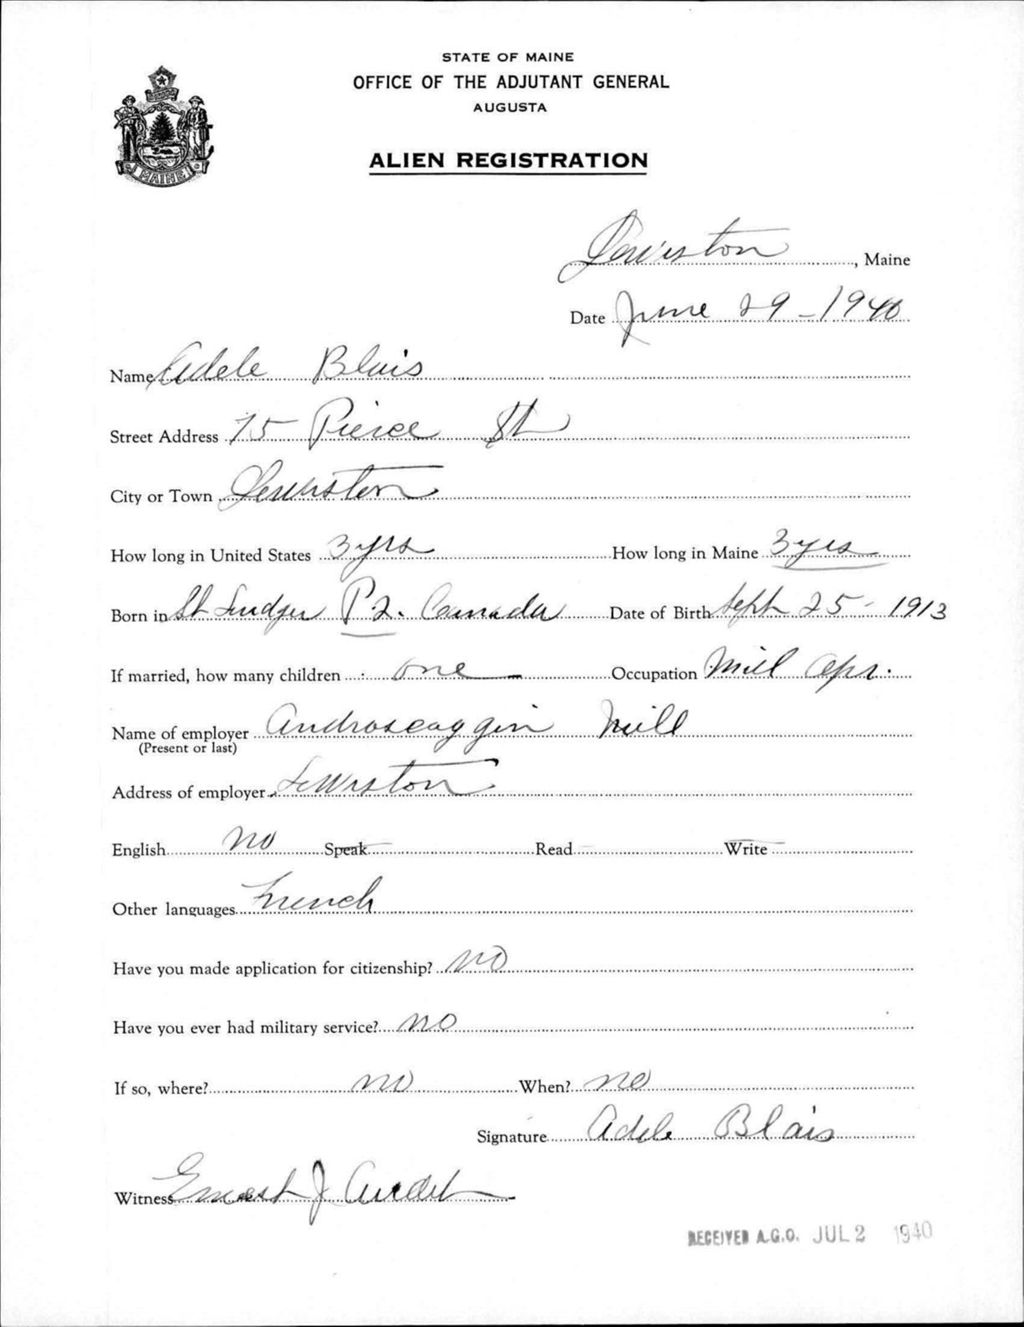 STATE OF MAINE
OFFICE OF THE ADJUTANT GENERAL
AUGUSTA
ALIEN REGISTRATION
MAINE
Lewiston, Maine
Date June 29-1940
Name Adele Blais
Street Address 75 Pierce St
City or Town Lewiston
How long in United States 3 yrs How long in Maine 3 yrs
Born in St Ludger P Q. Canada Date of Birth Sept 25-1913
If married, how many children one Occupation Mill Opr.
Name of employer Androscoggin Mill
(Present or last)
Address of employer Lewiston
English no Speak Read Write
Other languages French
Have you made application for citizenship? no
Have you ever had military service? no
If so, where? no When? no
Signature Adele Blais
Witness Ernest J Audet
RECEIVED A.G.O. JUL 2 1940